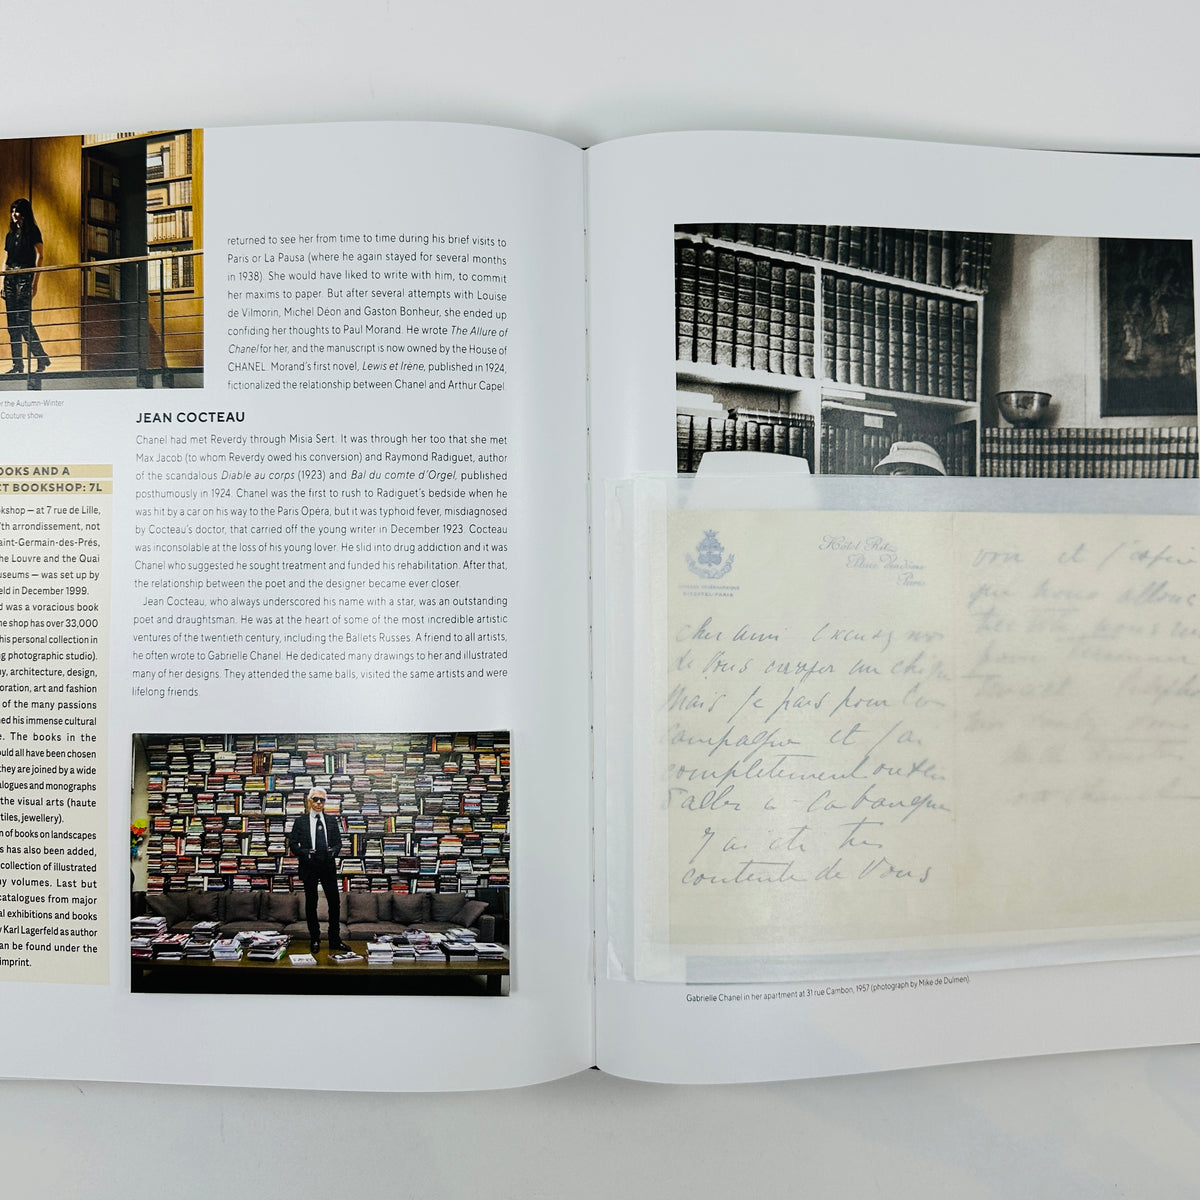 r the Autumn-Winter
Couture show
OOKS AND A
CT BOOKSHOP: 7L
kshop — at 7 rue de Lille,
7th arrondissement, not
aint-Germain-des-Prés,
he Louvre and the Quai
useums — was set up by
eld in December 1999.
d was a voracious book
he shop has over 33,000
his personal collection in
ng photographic studio).
y, architecture, design,
oration, art and fashion
of the many passions
ned his immense cultural
e. The books in the
ould all have been chosen
they are joined by a wide
alogues and monographs
the visual arts (haute
tiles, jewellery).
n of books on landscapes
s has also been added,
collection of illustrated
ny volumes. Last but
catalogues from major
al exhibitions and books
y Karl Lagerfeld as author
an be found under the
imprint.
returned to see her from time to time during his brief visits to
Paris or La Pausa (where he again stayed for several months
in 1938). She would have liked to write with him, to commit
her maxims to paper. But after several attempts with Louise
de Vilmorin, Michel Déon and Gaston Bonheur, she ended up
confiding her thoughts to Paul Morand. He wrote The Allure of
Chanel for her, and the manuscript is now owned by the House of
CHANEL. Morand's first novel, Lewis et Irène, published in 1924,
fictionalized the relationship between Chanel and Arthur Capel.
JEAN COCTEAU
Chanel had met Reverdy through Misia Sert. It was through her too that she met
Max Jacob (to whom Reverdy owed his conversion) and Raymond Radiguet, author
of the scandalous Diable au corps (1923) and Bal du comte d'Orgel, published
posthumously in 1924. Chanel was the first to rush to Radiguet's bedside when he
was hit by a car on his way to the Paris Opéra, but it was typhoid fever, misdiagnosed
by Cocteau's doctor, that carried off the young writer in December 1923. Cocteau
was inconsolable at the loss of his young lover. He slid into drug addiction and it was
Chanel who suggested he sought treatment and funded his rehabilitation. After that,
the relationship between the poet and the designer became ever closer.
Jean Cocteau, who always underscored his name with a star, was an outstanding
poet and draughtsman. He was at the heart of some of the most incredible artistic
ventures of the twentieth century, including the Ballets Russes. A friend to all artists,
he often wrote to Gabrielle Chanel. He dedicated many drawings to her and illustrated
many of her designs. They attended the same balls, visited the same artists and were
lifelong friends.
Hôtel Ritz
Place Vendôme
Paris
cher ami Excusez moi
de vous
Mais je pars pour
campagne et j'ai
completement
d'aller a
J'ai ete tres
contente de Vous
voir et j'espère
que nous allons
Gabrielle Chanel in her apartment at 31 rue Cambon, 1957 (photograph by Mike de Dulmen).